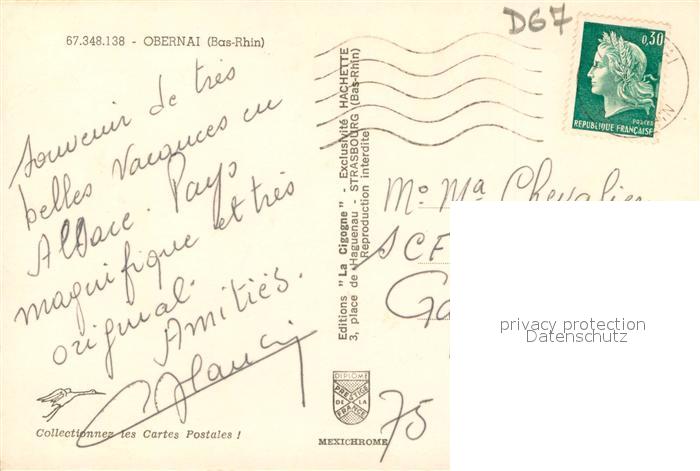 67.348.138 - OBERNAI (Bas-Rhin)
D67
0,30
POSTES
REPUBLIQUE FRANÇAISE
Souvenir de très
belles vacances en
Alsace. Pays
magnifique et très
original.
Amitiés.
Editions "La Cigogne" - Exclusivité HACHETTE
3, place de Haguenau - STRASBOURG (Bas-Rhin)
Reproduction interdite
Mo Ma Chevalier
SCE
Ga
privacy protection
Datenschutz
DIPLOME
PRESTIGE
DE LA
FRANCE
75
Collectionnez les Cartes Postales !
MEXICHROME